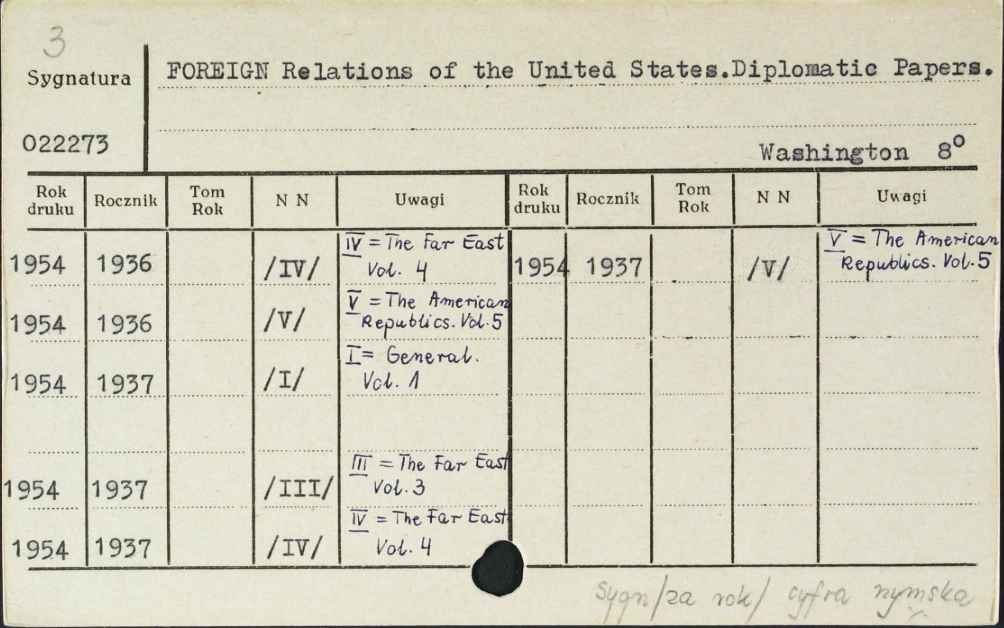 3
Sygnatura
FOREIGN Relations of the United States.Diplomatic Papers.
022273
Washington 8º
Rok druku Rocznik Tom Rok N N Uwagi Rok druku Rocznik Tom Rok N N Uwagi
1954 1936 /IV/ IV = The Far East
Vol. 4
1954 1937 /V/ V = The American
Republics. Vol.5
1954 1936 /V/ V = The American
Republics. Vol.5
1954 1937 /I/ I = General.
Vol. 1
1954 1937 /III/ III = The Far East
Vol.3
1954 1937 /IV/ IV = The Far East
Vol. 4
Sygn/za rok/ cyfra rzymska